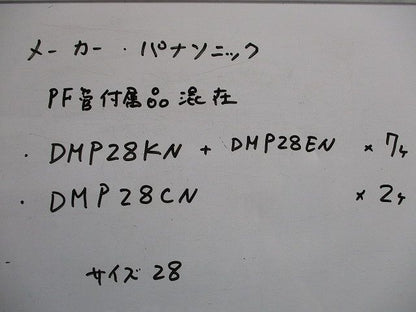 メーカー・パナソニック
PF管付属品混在
・DMP28KN + DMP28EN × 7ヶ
・DMP28CN × 2ヶ
サイズ 28